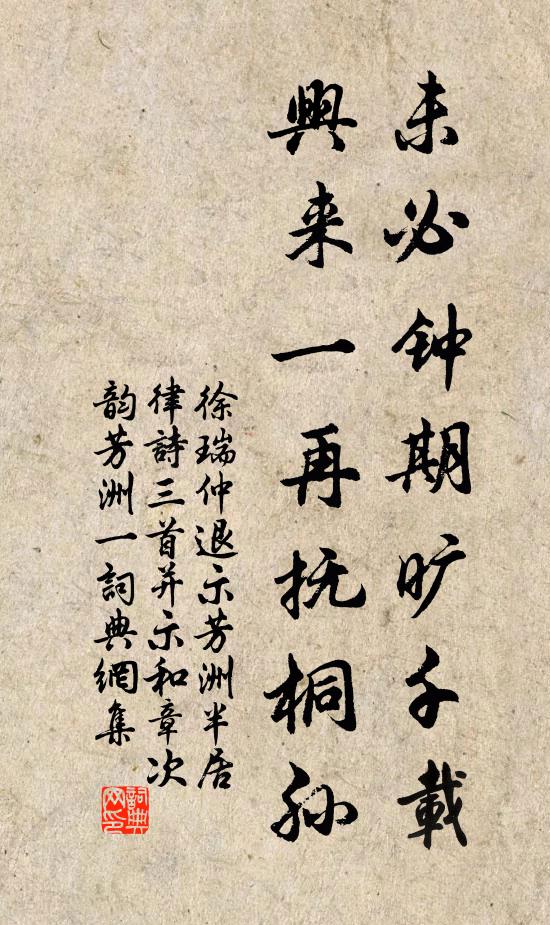 未必钟期旷千載
興来一再抚桐孙
徐瑞仲退示芳洲半居
律詩三首并示和章次
韵芳洲一詞典網集
詞典网印